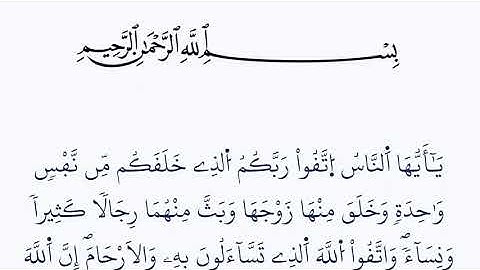 بِسْمِ اللَّهِ الرَّحْمَٰنِ الرَّحِيمِ
يَٰٓأَيُّهَا اَ۬لنَّاسُ اُ۪تَّقُواْ رَبَّكُمُ اُ۬لذِے خَلَقَكُم مِّن نَّفْسٖ
وَٰحِدَةٖ وَخَلَقَ مِنْهَا زَوْجَهَا وَبَثَّ مِنْهُمَا رِجَالاٗ كَثِيراٗ
وَنِسَآءٗۖ وَاتَّقُواْ اُ۬للَّهَ اَ۬لذِے تَسَّآءَلُونَ بِهِۦ وَالَارْحَامَۖ إِنَّ اَ۬للَّهَ